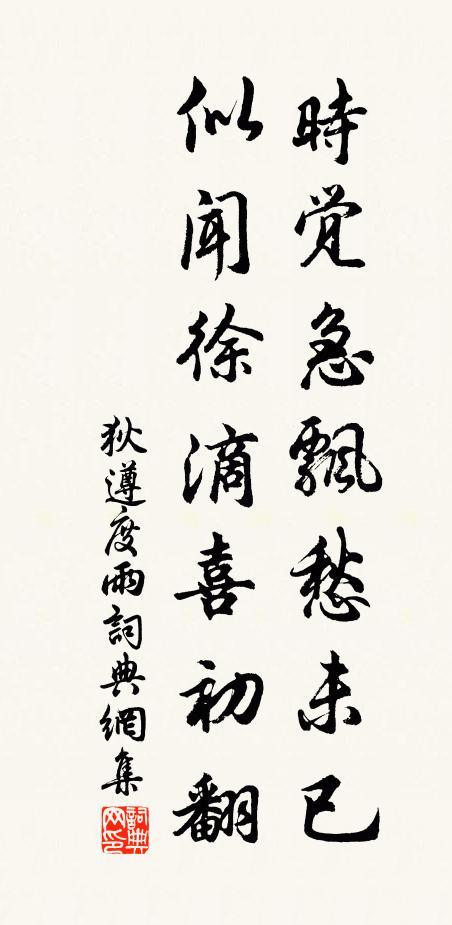 時觉急飄愁未已
似闻徐滴喜初翻
狄遵度雨詞典網集
詞典网印